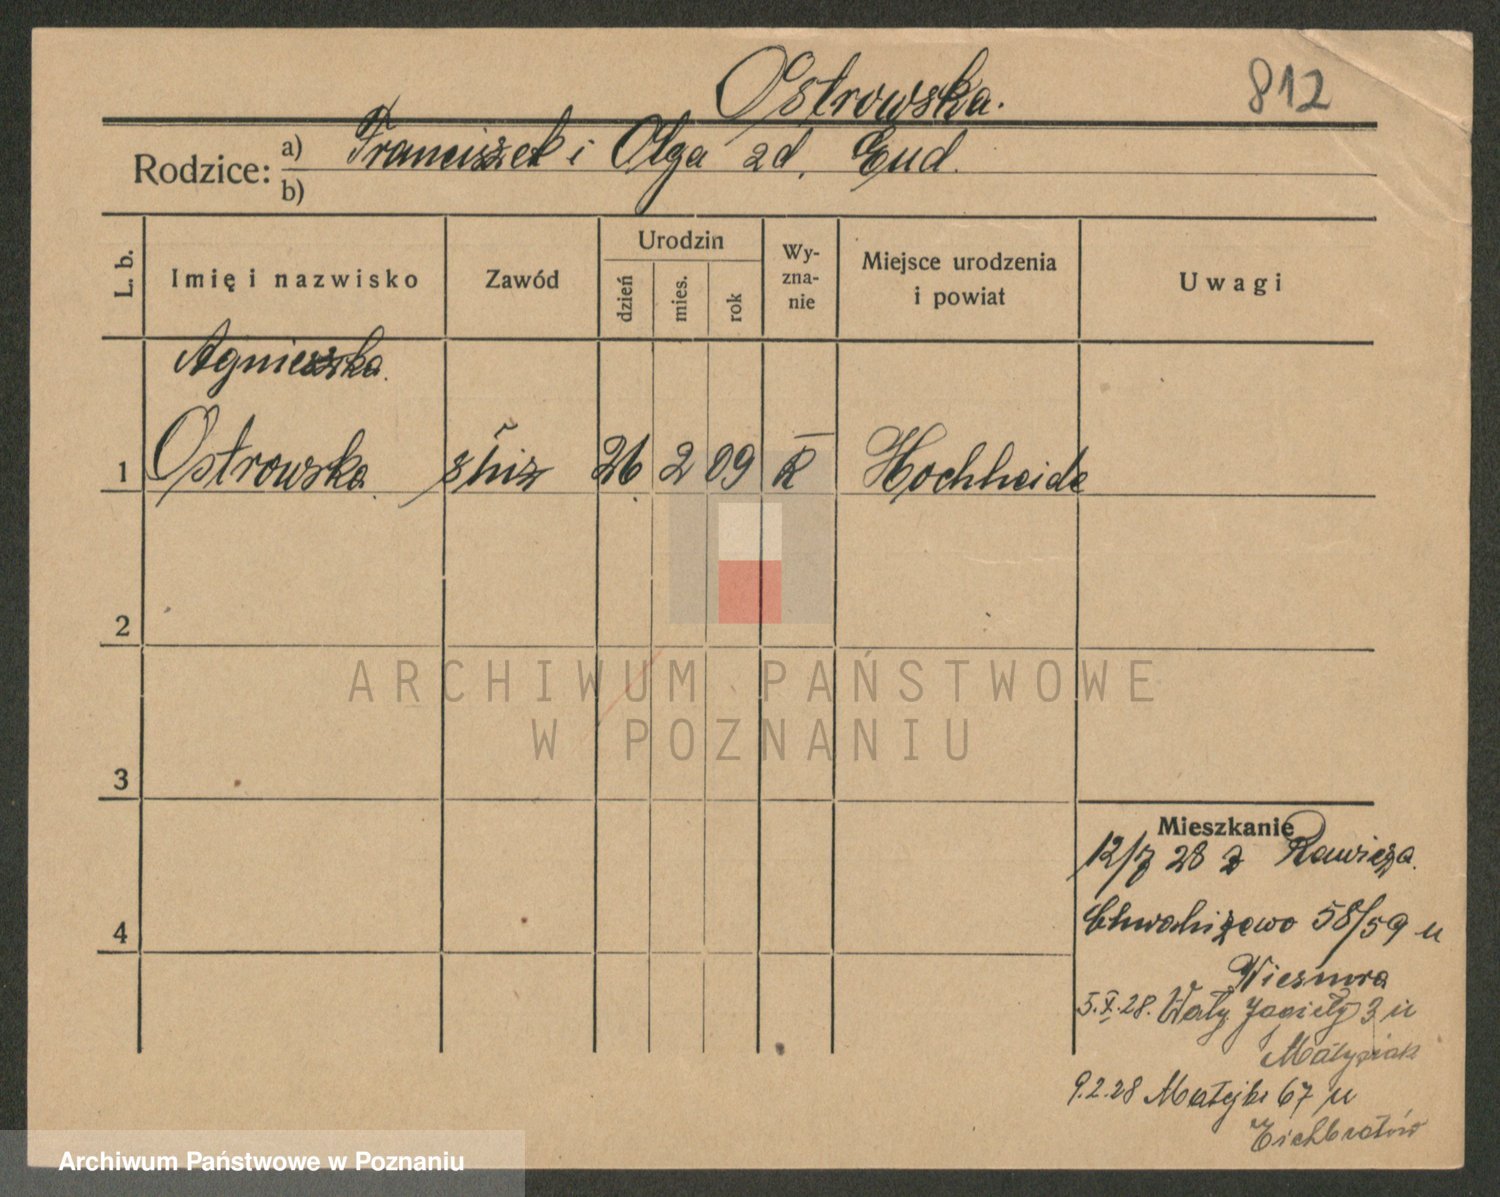 Ostrowska. 812
Rodzice: a) Franciszek i Olga zd. Eud.
b)
L. b. Imię i nazwisko Zawód Urodzin dzień mies. rok Wy-zna-nie Miejsce urodzenia i powiat Uwagi
Agnieszka
1 Ostrowska służ 26 2 09 K Hochheide
2
3
4
Mieszkanie
12/7 28 z Rawicza.
Chwaliszewo 58/59 u
5.X.28. Wały Jagiełły 3 u
Matysiak
9.2.28 Matejki 67 u
ARCHIWUM PAŃSTWOWE
W POZNANIU
Archiwum Państwowe w Poznaniu